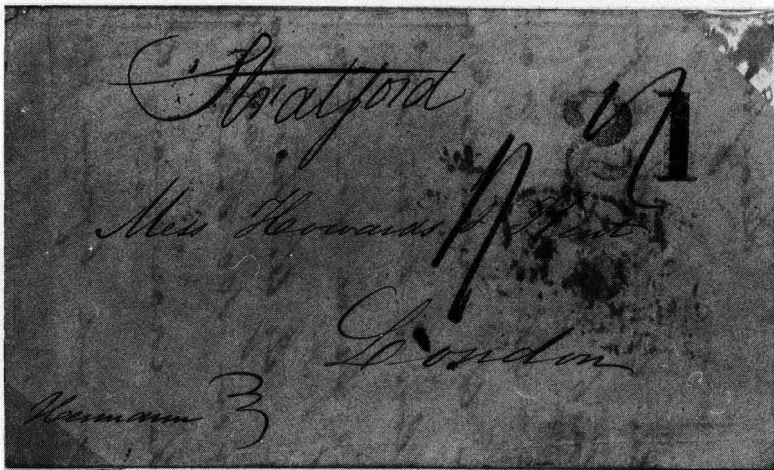 Stratford
1
Mess Howards & Kent
London
Hermann 3